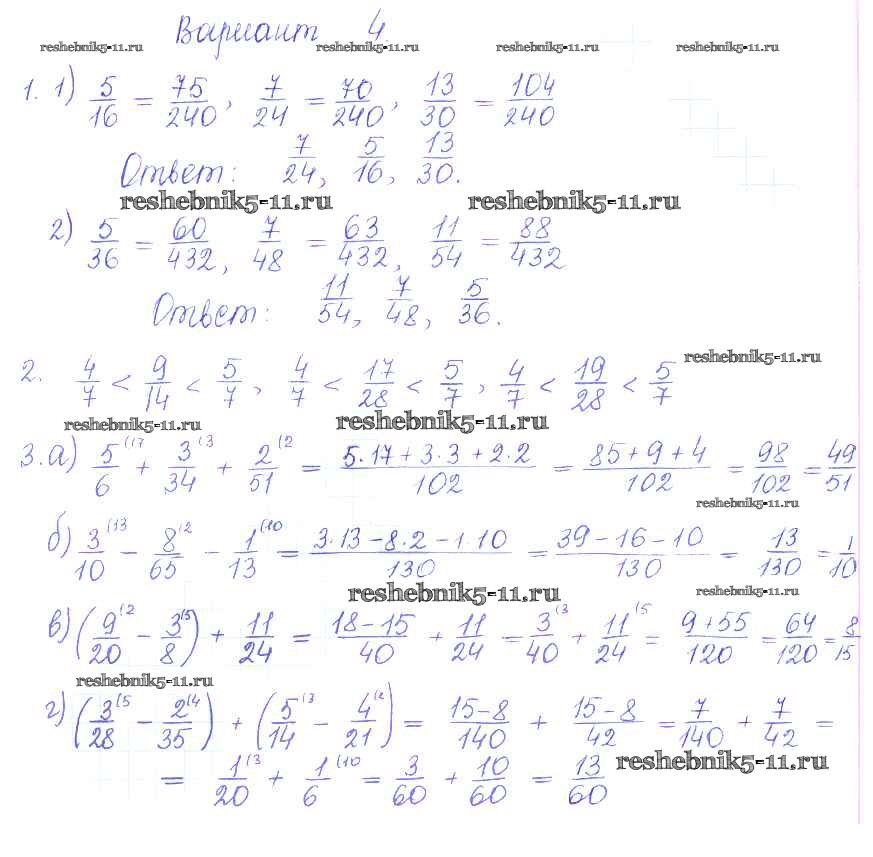 Вариант 4
reshebnik5-11.ru reshebnik5-11.ru reshebnik5-11.ru reshebnik5-11.ru
1. 1) 5/16 = 75/240, 7/24 = 70/240, 13/30 = 104/240
Ответ: 7/24, 5/16, 13/30.
reshebnik5-11.ru reshebnik5-11.ru
2) 5/36 = 60/432, 7/48 = 63/432, 11/54 = 88/432
Ответ: 11/54, 7/48, 5/36.
reshebnik5-11.ru
2. 4/7 < 9/14 < 5/7, 4/7 < 17/28 < 5/7, 4/7 < 19/28 < 5/7
reshebnik5-11.ru reshebnik5-11.ru
3. а) 5/6 (17 + 3/34 (3 + 2/51 (2 = (5·17+3·3+2·2)/102 = (85+9+4)/102 = 98/102 = 49/51
reshebnik5-11.ru
б) 3/10 (13 − 8/65 (2 − 1/13 (10 = (3·13−8·2−1·10)/130 = (39−16−10)/130 = 13/130 = 1/10
reshebnik5-11.ru reshebnik5-11.ru
в) (9/20 (2 − 3/8 (5) + 11/24 = (18−15)/40 + 11/24 = 3/40 (3 + 11/24 (5 = (9+55)/120 = 64/120 = 8/15
reshebnik5-11.ru
г) (3/28 (5 − 2/35 (4) + (5/14 (3 − 4/21 (2) = (15−8)/140 + (15−8)/42 = 7/140 + 7/42 =
= 1/20 (3 + 1/6 (10 = 3/60 + 10/60 = 13/60
reshebnik5-11.ru